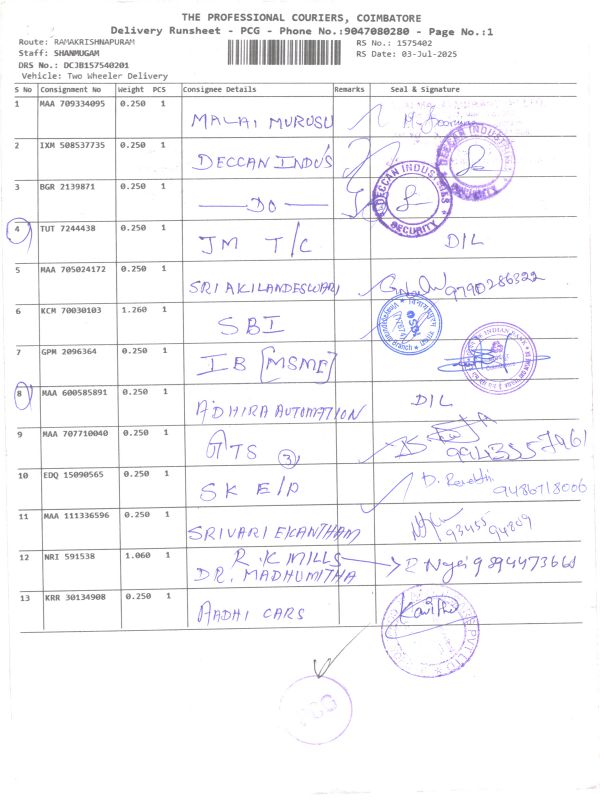 THE PROFESSIONAL COURIERS, COIMBATORE
Delivery Runsheet - PCG - Phone No.:9047080280 - Page No.:1
Route: RAMAKRISHNAPURAM RS No.: 1575402
Staff: SHANMUGAM RS Date: 03-Jul-2025
DRS No.: DCJB157540201
Vehicle: Two Wheeler Delivery
S No Consignment No Weight PCS Consignee Details Remarks Seal & Signature
1 MAA 709334095 0.250 1 MALAI MURUSU
2 IXM 508537735 0.250 1 DECCAN INDUS DECCAN INDUSTRIES SECURITY
3 BGR 2139871 0.250 1 DO DECCAN INDUSTRIES SECURITY
4 TUT 7244438 0.250 1 JM T/C D/L
5 MAA 705024172 0.250 1 SRI AKILANDESWARI 9790286322
6 KCM 70030103 1.260 1 SBI
7 GPM 2096364 0.250 1 IB [MSME] INDIAN BANK
8 MAA 600585891 0.250 1 ADHIRA AUTOMATION D/L
9 MAA 707710040 0.250 1 GTS 3 9943557961
10 EDQ 15090565 0.250 1 SK E/P D. Revathi 9486718006
11 MAA 111336596 0.250 1 SRIVARI EKANTHAM 93455 94209
12 NRI 591538 1.060 1 R.K MILLS 9894473661
DR. MADHUMITHA
13 KRR 30134908 0.250 1 AADHI CARS